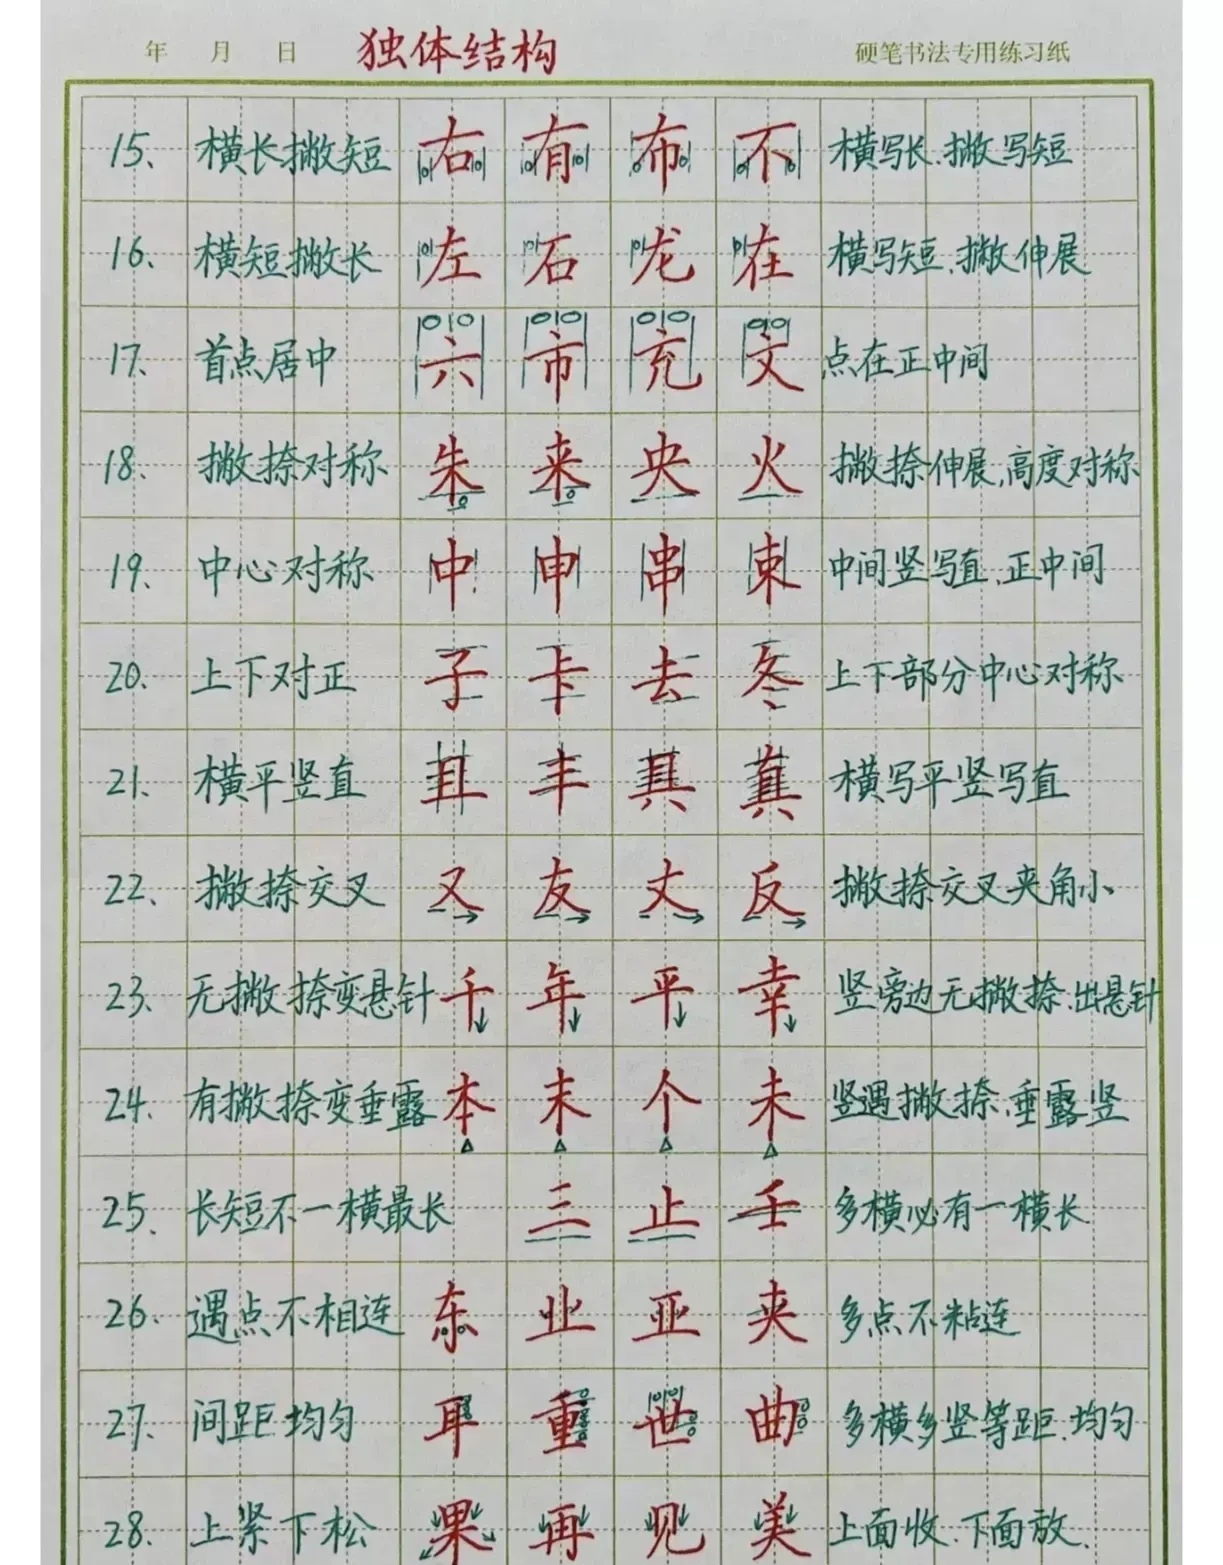 年 月 日 独体结构 硬笔书法专用练习纸
15、 横长撇短 右 有 布 不 横写长、撇写短
16、 横短撇长 左 石 龙 在 横写短、撇伸展
17、 首点居中 六 市 充 文 点在正中间
18、 撇捺对称 朱 来 央 火 撇捺伸展、高度对称
19、 中心对称 中 申 串 束 中间竖写直、正中间
20、 上下对正 子 卡 去 冬 上下部分中心对称
21、 横平竖直 且 丰 具 真 横写平竖写直
22、 撇捺交叉 又 友 丈 反 撇捺交叉夹角小
23、 无撇捺变悬针 千 年 平 幸 竖旁边无撇捺、出悬针
24、 有撇捺变垂露 本 末 个 未 竖遇撇捺、垂露竖
25、 长短不一横最长 三 止 壬 多横必有一横长
26、 遇点不相连 东 业 亚 夹 多点不粘连
27、 间距均匀 耳 重 世 曲 多横多竖等距、均匀
28、 上紧下松 果 再 见 美 上面收、下面放、